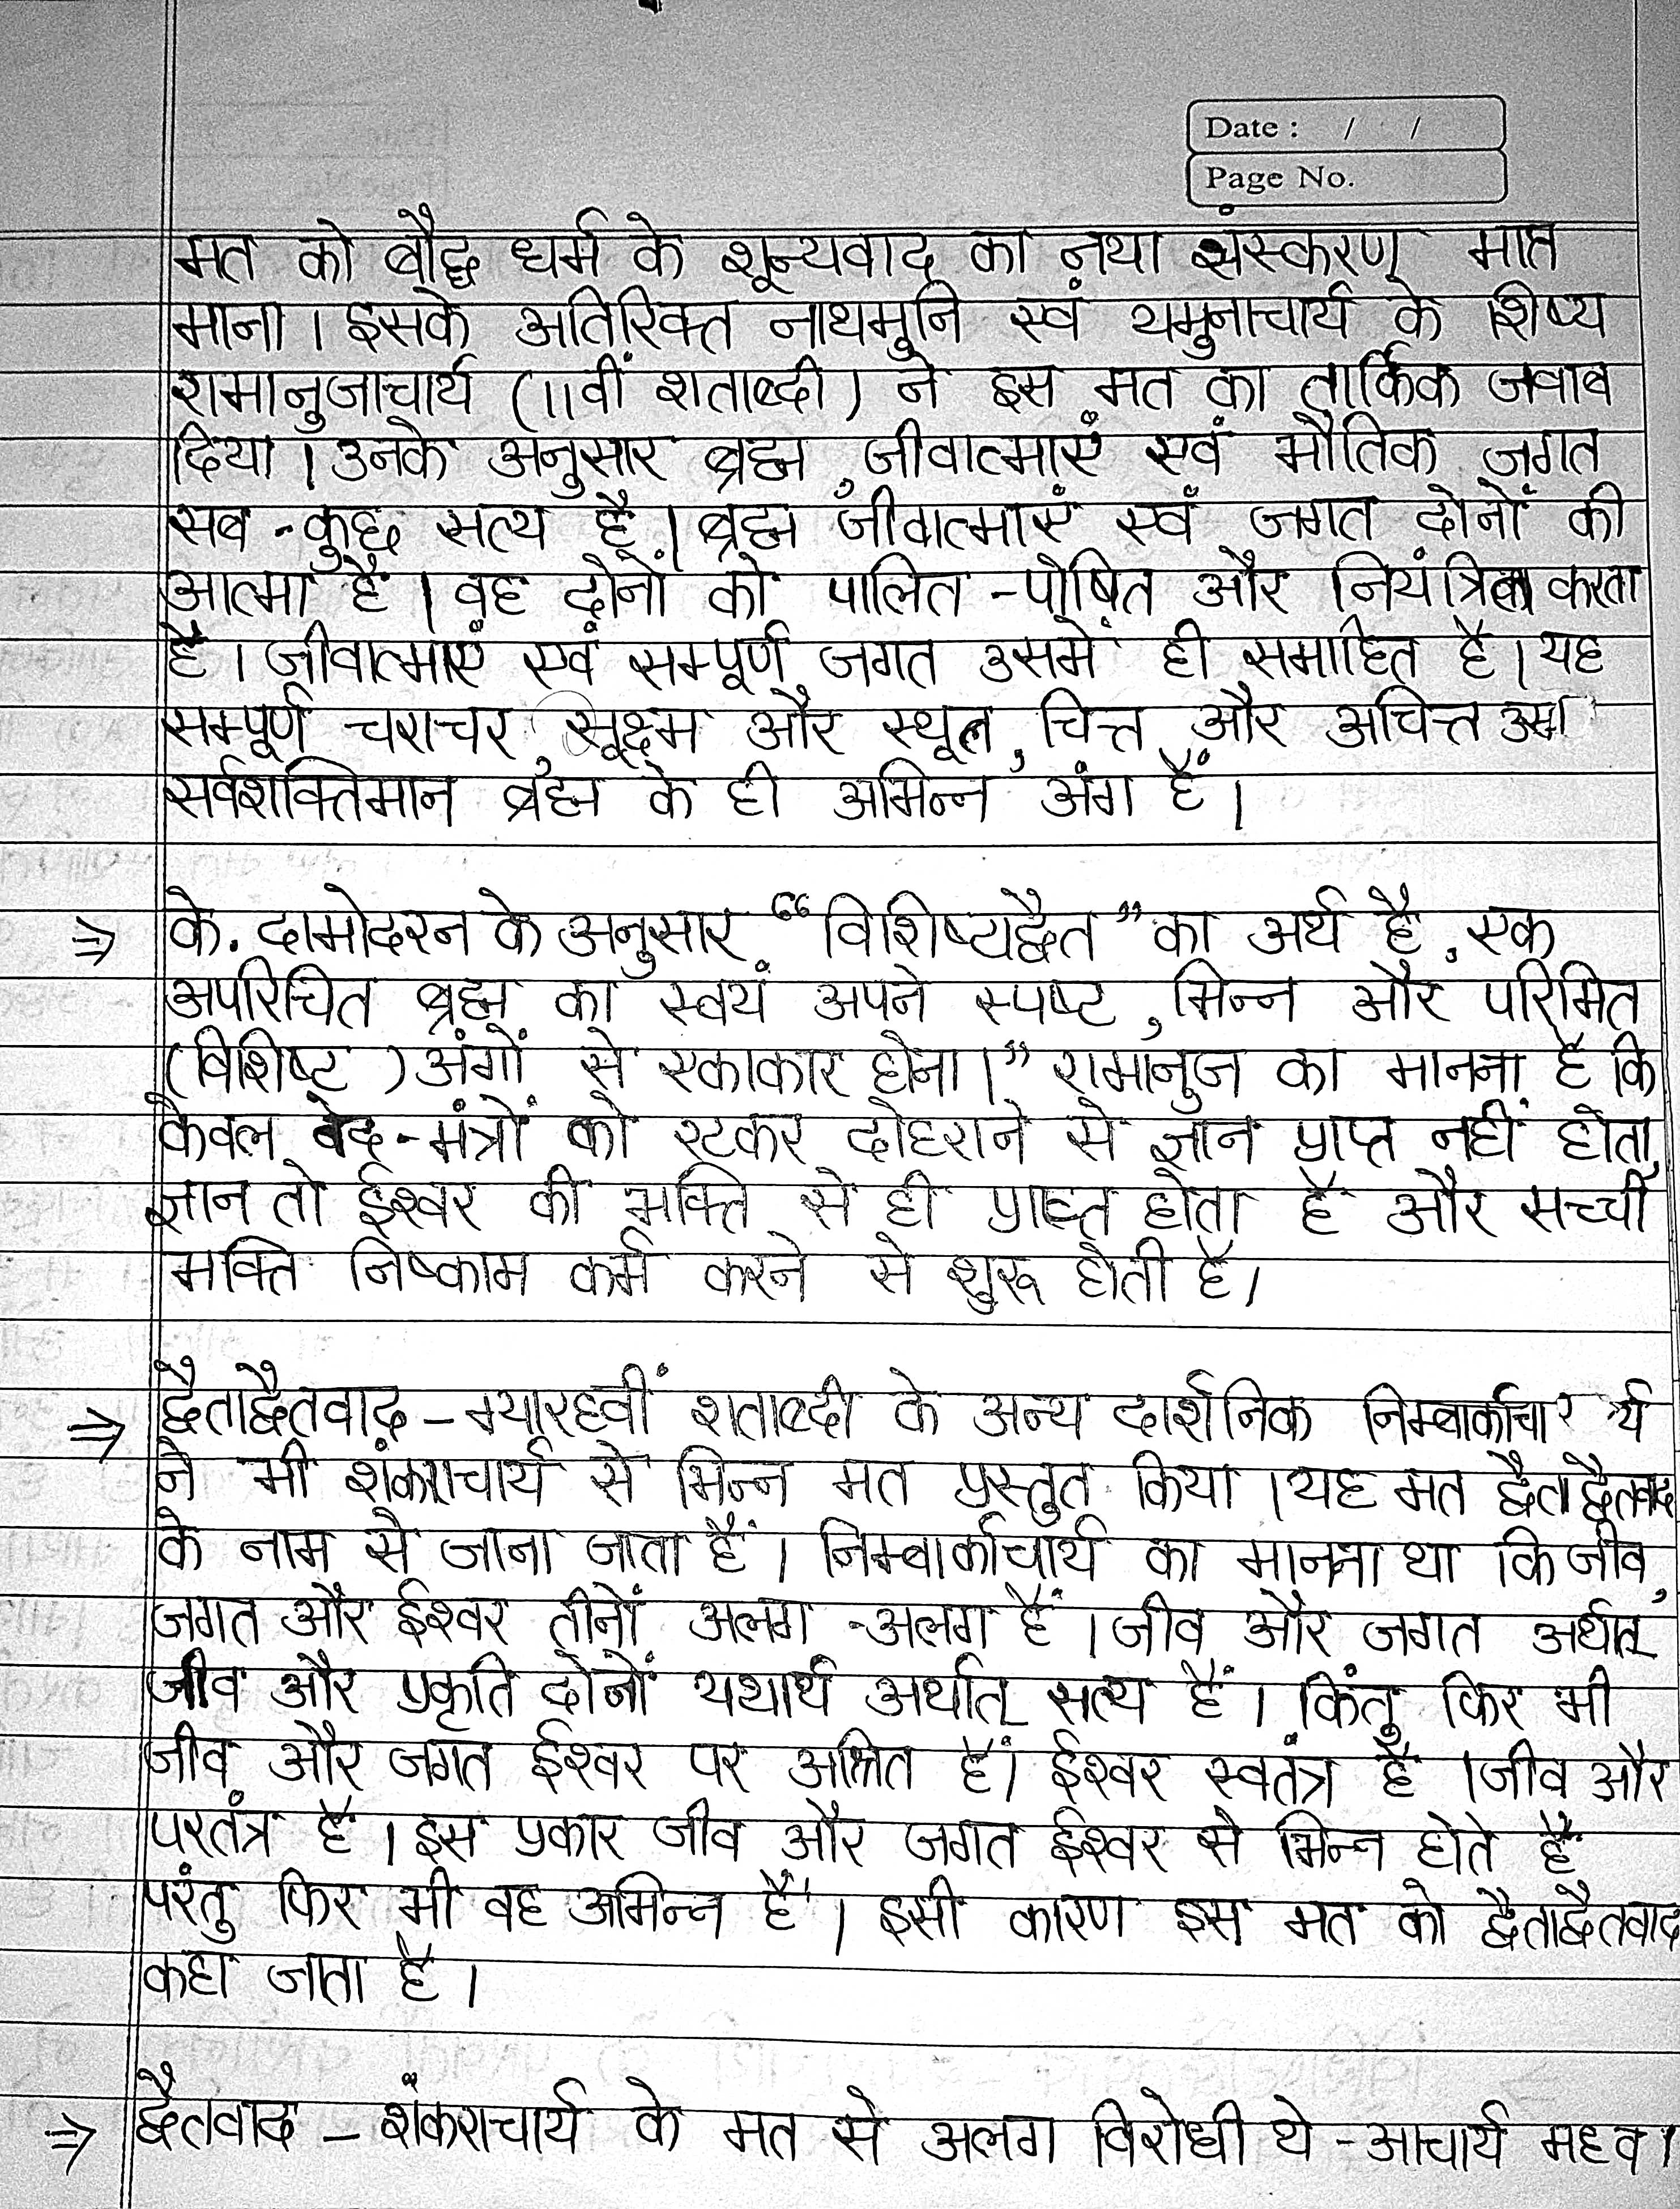 Date :    /    /
Page No.
मत को बौद्ध धर्म के शून्यवाद का नया संस्करण मात
माना। इसके अतिरिक्त नाथमुनि एवं यमुनाचार्य के शिष्य
रामानुजाचार्य (11वीं शताब्दी) ने इस मत का तार्किक जवाब
दिया। उनके अनुसार ब्रह्म, जीवात्माएं एवं भौतिक जगत
सब-कुछ सत्य है। ब्रह्म, जीवात्माएं एवं जगत दोनों की
आत्मा है। वह दोनों को पालित-पोषित और नियंत्रित करता
है। जीवात्माएं एवं सम्पूर्ण जगत उसमें ही समाहित है। यह
सम्पूर्ण चराचर, सूक्ष्म और स्थूल, चित्त और अचित्त उस
सर्वशक्तिमान ब्रह्म के ही अभिन्न अंग हैं।
⇒ के. दामोदरन के अनुसार “विशिष्यद्वैत” का अर्थ है, एक
अपरिचित ब्रह्म का स्वयं अपने स्पष्ट, भिन्न और परिमित
(विशिष्ट) अंगों से एकाकार होना।” रामानुज का मानना है कि
केवल वेद-मंत्रों को रटकर दोहराने से ज्ञान प्राप्त नहीं होता,
ज्ञान तो ईश्वर की भक्ति से ही प्राप्त होता है और सच्ची
भक्ति निष्काम कर्म करने से शुरू होती है।
⇒ द्वैताद्वैतवाद - ग्यारहवीं शताब्दी के अन्य दार्शनिक निम्बार्काचार र्य
ने भी शंकराचार्य से भिन्न मत प्रस्तुत किया। यह मत द्वैताद्वैतवाद
के नाम से जाना जाता है। निम्बार्काचार्य का मानना था कि जीव,
जगत और ईश्वर तीनों अलग-अलग हैं। जीव और जगत अर्थात्
जीव और प्रकृति दोनों यथार्थ अर्थात् सत्य हैं। किंतु फिर भी
जीव और जगत ईश्वर पर आश्रित हैं। ईश्वर स्वतंत्र है। जीव और
परतंत्र है। इस प्रकार जीव और जगत ईश्वर से भिन्न होते हैं
परंतु फिर भी वह अभिन्न हैं। इसी कारण इस मत को द्वैताद्वैतवाद
कहा जाता है।
⇒ द्वैतवाद - शंकराचार्य के मत से अलग विरोधी थे - आचार्य मध्व।